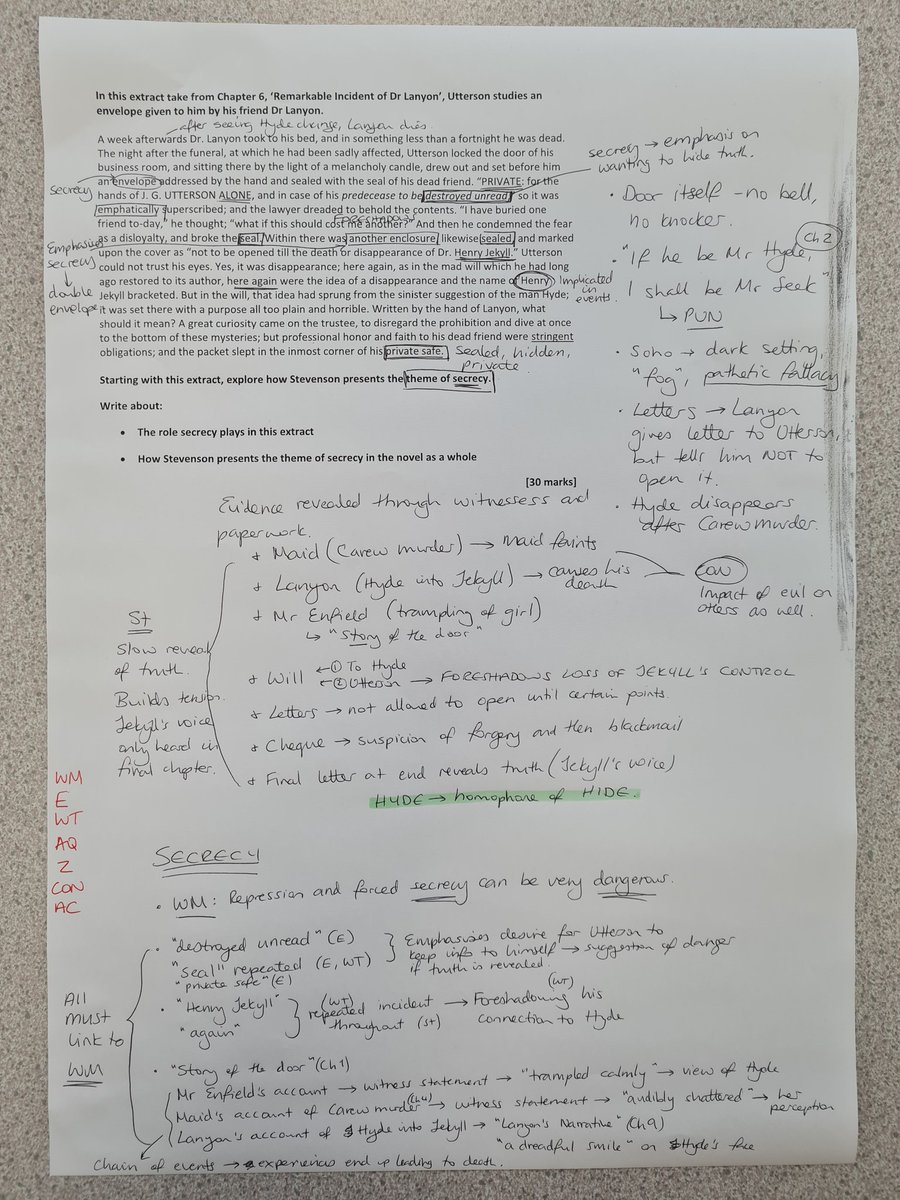 In this extract take from Chapter 6, 'Remarkable Incident of Dr Lanyon', Utterson studies an
envelope given to him by his friend Dr Lanyon.
after seeing Hyde change, Lanyon dies.
A week afterwards Dr. Lanyon took to his bed, and in something less than a fortnight he was dead.
The night after the funeral, at which he had been sadly affected, Utterson locked the door of his
business room, and sitting there by the light of a melancholy candle, drew out and set before him
an envelope addressed by the hand and sealed with the seal of his dead friend. "PRIVATE: for the
hands of J. G. UTTERSON ALONE, and in case of his predecease to be destroyed unread," so it was
emphatically superscribed; and the lawyer dreaded to behold the contents. "I have buried one
friend to-day," he thought; "what if this should cost me another?" And then he condemned the fear
as a disloyalty, and broke the seal. Within there was another enclosure, likewise sealed, and marked
upon the cover as "not to be opened till the death or disappearance of Dr. Henry Jekyll." Utterson
could not trust his eyes. Yes, it was disappearance; here again, as in the mad will which he had long
ago restored to its author, here again were the idea of a disappearance and the name of Henry
Jekyll bracketed. But in the will, that idea had sprung from the sinister suggestion of the man Hyde;
it was set there with a purpose all too plain and horrible. Written by the hand of Lanyon, what
should it mean? A great curiosity came on the trustee, to disregard the prohibition and dive at once
to the bottom of these mysteries; but professional honor and faith to his dead friend were stringent
obligations; and the packet slept in the inmost corner of his private safe.
Sealed, hidden,
private
secrecy
FORESHADOWS
Emphasises
secrecy
↓
double
envelope
Implicated
in
events.
Starting with this extract, explore how Stevenson presents the theme of secrecy.
Write about:
• The role secrecy plays in this extract
• How Stevenson presents the theme of secrecy in the novel as a whole
[30 marks]
secrecy → emphasis on
wanting to hide truth.
• Door itself - no bell,
no knocker.
Ch 2
• "If he be Mr Hyde,
I shall be Mr Seek"
↳ PUN
• Soho → dark setting,
"fog", pathetic fallacy
• Letters → Lanyon
gives letter to Utterson,
but tells him NOT to
open it.
• Hyde disappears
after Carew murder.
Evidence revealed through witnessess and
paperwork.
+ Maid (Carew murder) → maid faints
+ Lanyon (Hyde into Jekyll) → causes his
death
CON
Impact of evil on
others as well.
+ Mr Enfield (trampling of girl)
↳ "Story of the door"
+ Will ← ① To Hyde
← ② Utterson → FORESHADOWS LOSS OF JEKYLL'S CONTROL
+ Letters → not allowed to open until certain points.
+ Cheque → suspicion of forgery and then blackmail
+ Final letter at end reveals truth (Jekyll's voice)
HYDE → homophone of HIDE.
St
Slow reveal
of truth.
Builds tension.
Jekyll's voice
only heard in
final chapter.
WM
E
WT
AQ
Z
CON
AC
SECRECY
• WM: Repression and forced secrecy can be very dangerous.
• "destroyed unread" (E)
"seal" repeated (E, WT)
"private safe" (E)
Emphasises desire for Utterson to
keep info to himself → suggestion of danger
if truth is revealed.
• "Henry Jekyll"
"again"
(WT)
repeated incident → Foreshadowing his
throughout (St)
(WT)
connection to Hyde
All
must
link to
WM
• "Story of the door" (Ch1)
Mr Enfield's account → witness statement → "trampled calmly" → view of Hyde
Maid's account of Carew murder (Ch4) → witness statement → "audibly shattered" → her
perception
Lanyon's account of Hyde into Jekyll → "Lanyon's Narrative" (Ch9)
"a dreadful smile" on Hyde's face
Chain of events → experiences end up leading to death.